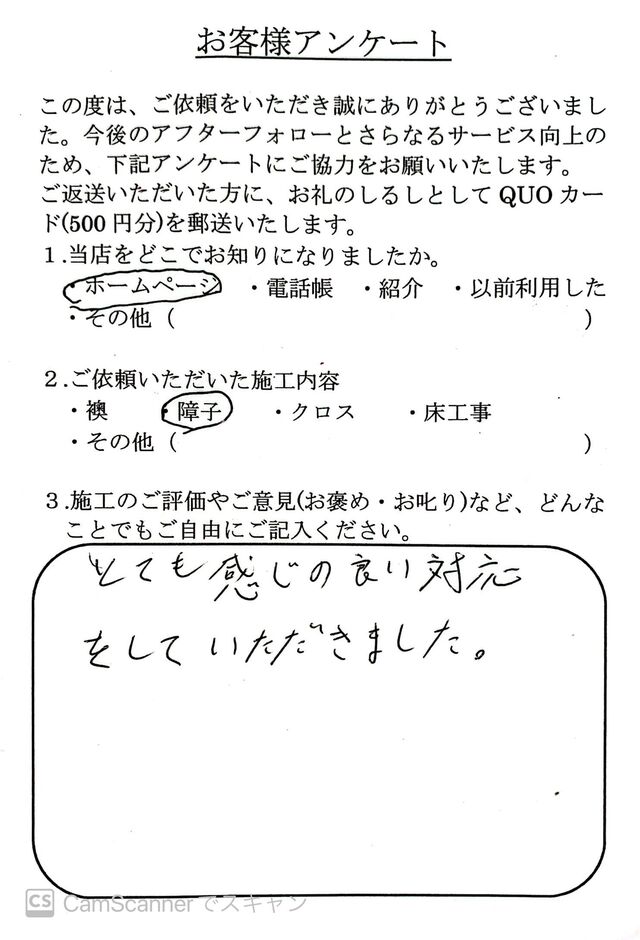 お客様アンケート
この度は、ご依頼をいただき誠にありがとうございまし
た。今後のアフターフォローとさらなるサービス向上の
ため、下記アンケートにご協力をお願いいたします。
ご返送いただいた方に、お礼のしるしとして QUO カー
ド(500 円分)を郵送いたします。
１.当店をどこでお知りになりましたか。
・ホームページ ・電話帳 ・紹介 ・以前利用した
・その他（ ）
２.ご依頼いただいた施工内容
・襖 ・障子 ・クロス ・床工事
・その他（ ）
３.施工のご評価やご意見(お褒め・お叱り)など、どんな
ことでもご自由にご記入ください。
とても感じの良い対応
をしていただきました。
CS CamScannerでスキャン